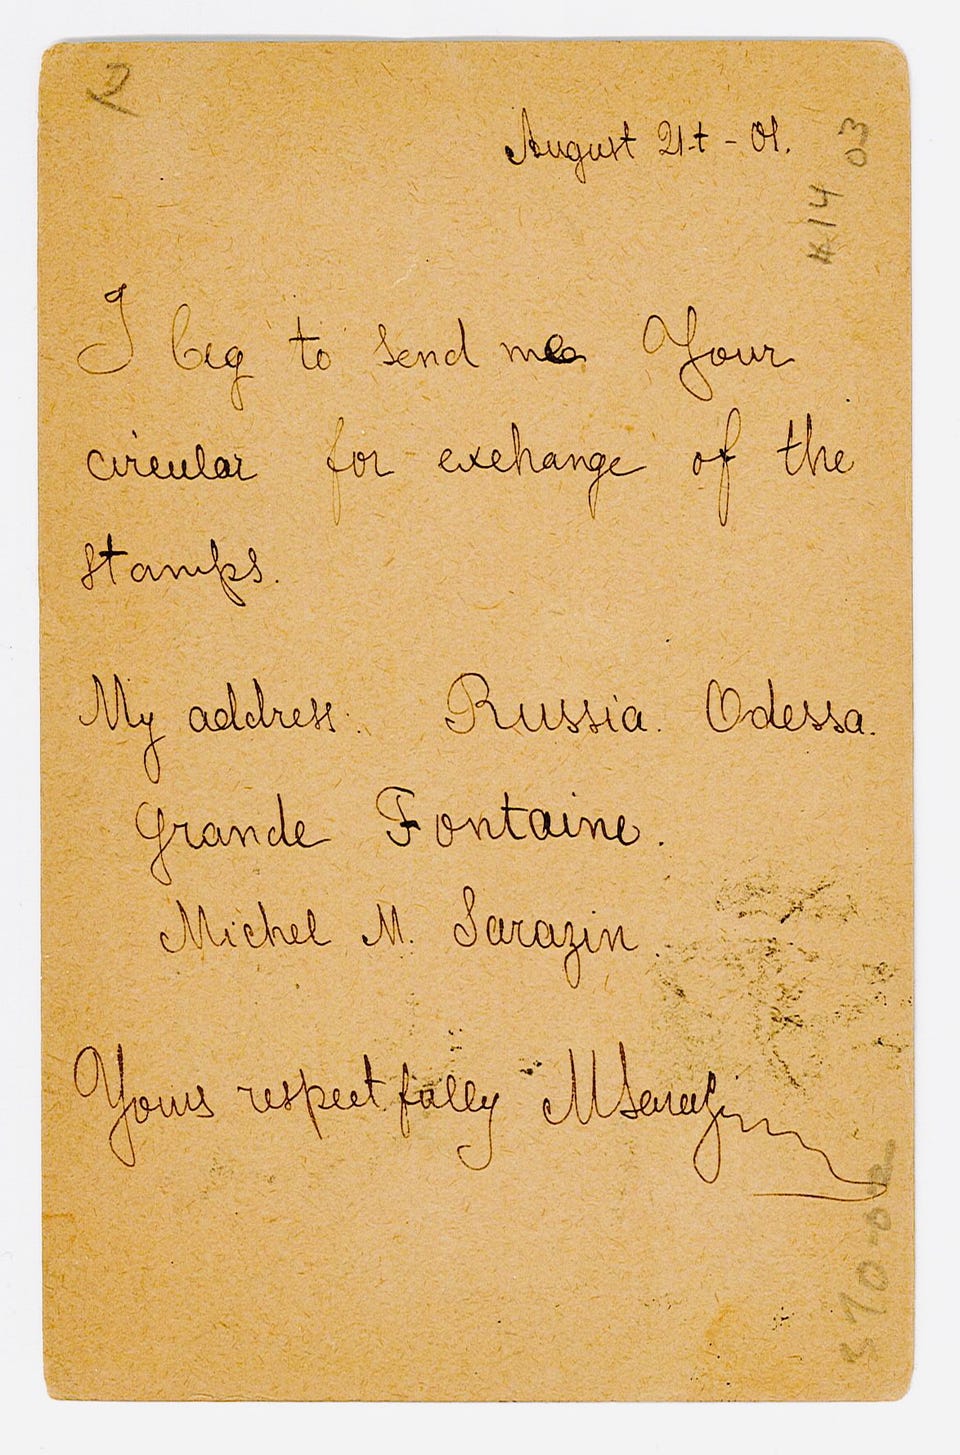 August 21-t - 01.
I beg to send me Your
circular for exchange of the
stamps.
My address: Russia. Odessa.
Grande Fontaine.
Michel M. Sarazin.
Yours respectfully MSarazin
#14
03